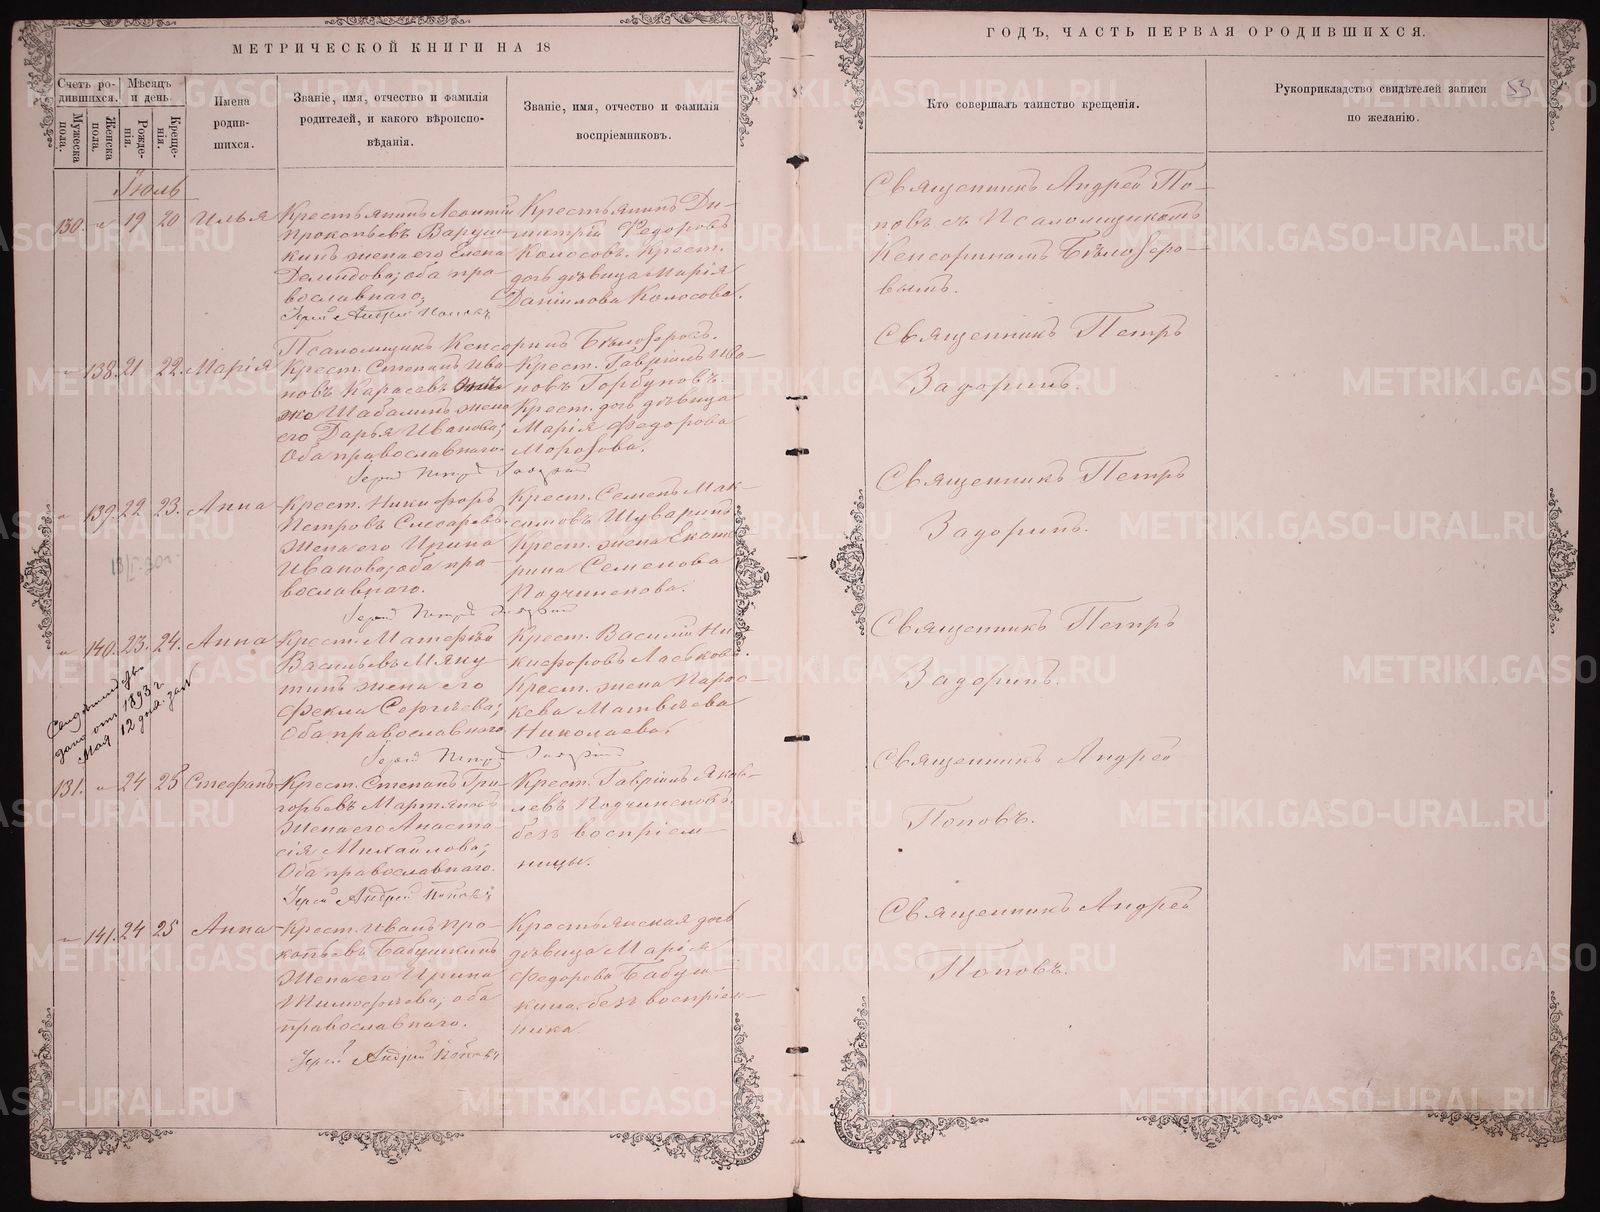 МЕТРИЧЕСКОЙ КНИГИ НА 18
Счетъ ро-
дившихся.
Мѣсяцъ
и день.
Мужеска
пола.
Женска
пола.
Рожде-
нія.
Креще-
нія.
Имена
родив-
шихся.
Званіе, имя, отчество и фамилія
родителей, и какого вѣроиспо-
вѣданія.
Званіе, имя, отчество и фамилія
воспріемниковъ.
Іюль
130. " 19 20 Илья
Крестьянинъ Леонтій
Прокопьевъ Варуш-
кинъ жена его Елена
Демидова; оба пра-
вославнаго;
Іерей Андрей Поповъ
Псаломщикъ Кенсоринъ Бѣлозеровъ.
Крестьянинъ Ди-
митрій Федоровъ
Колосовъ. Крест.
дочь дѣвица Марія
Даніилова Колосова.
" 138. 21 22. Марія
Крест. Степанъ Ива-
новъ Карасевъ
же Шабалинъ жена
его Дарья Иванова;
Оба православнаго.
Іерей Петръ Задоринъ
Крест. Гавріилъ Ива-
новъ Горбуновъ.
Крест. дочь дѣвица
Марія Федорова
Морозова.
" 139. 22 23. Анна
Крест. Никифоръ
Петровъ Слесаревъ
жена его Ирина
Иванова; оба пра-
вославнаго.
Іерей Петръ Задоринъ
Крест. Семенъ Мак-
симовъ Шуваринъ
Крест. жена Екате-
рина Семенова
Подчиненова.
" 140. 23. 24. Анна
Крест. Матерѣй
Васильевъ Мяку-
тинъ жена его
Фекла Сергѣева;
Оба православнаго
Іерей Петръ Задоринъ
Крест. Василій Ни-
кифоровъ Ласьковъ.
Крест. жена Парас-
кева Матвѣева
Николаева.
Свидѣтельство
дано отъ 1893 г.
Мая 12 дня. за №
131. " 24 25 Стефанъ
Крест. Степанъ Гри-
горьевъ Мартяновъ
жена его Анаста-
сія Михайлова;
Оба православнаго.
Іерей Андрей Поповъ
Крест. Гавріилъ Яков-
левъ Подчиненовъ.
безъ воспріем-
ницы.
" 141. 24 25 Анна
Крест. Иванъ Про-
копьевъ Бабушкинъ
жена его Ирина
Тимофѣева; оба
православнаго.
Іерей Андрей Поповъ
Крестьянская дочь
дѣвица Марія
Федорова Бабуш-
кина. безъ воспріем-
ника
ГОДЪ, ЧАСТЬ ПЕРВАЯ ОРОДИВШИХСЯ.
53
Кто совершалъ таинство крещенія.
Рукоприкладство свидѣтелей записи
по желанію.
Священникъ Андрей По-
повъ съ Псаломщикомъ
Кенсориномъ Бѣлозеро-
вымъ.
Священникъ Петръ
Задоринъ.
Священникъ Петръ
Задоринъ.
Священникъ Петръ
Задоринъ.
Священникъ Андрей
Поповъ.
Священникъ Андрей
Поповъ.
METRIKI.GASO-URAL.RU